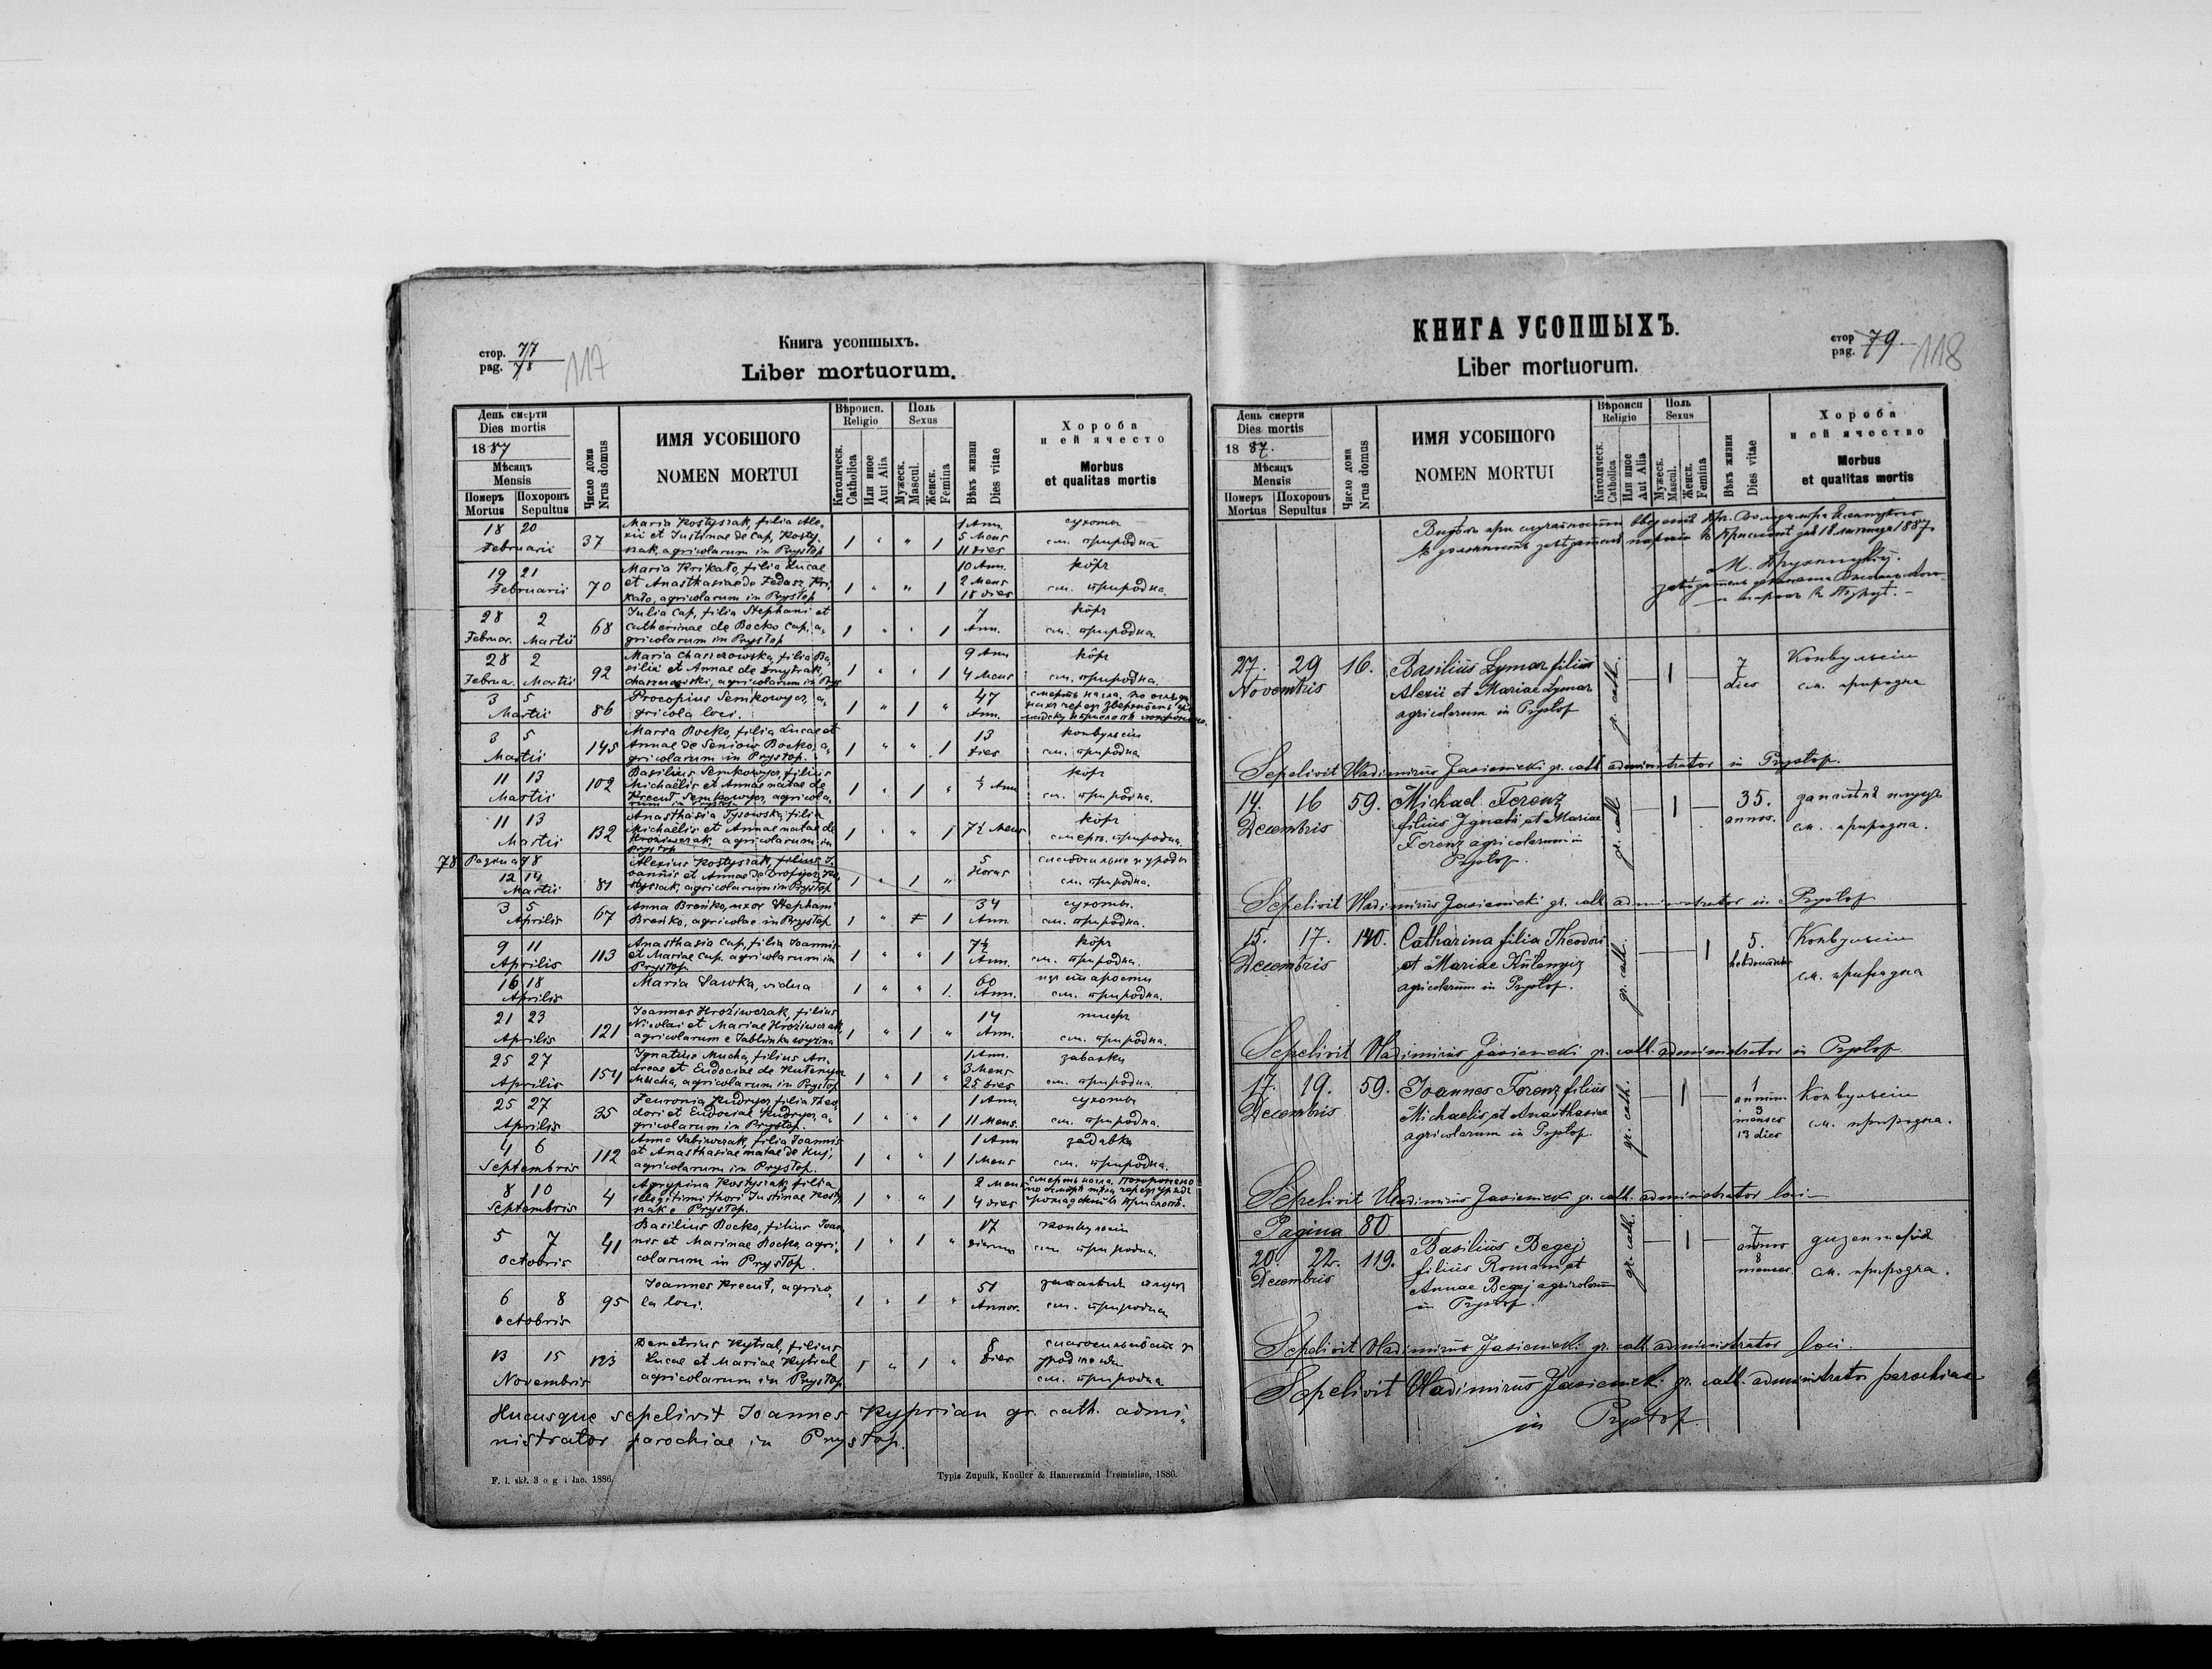 стор. 77
pag. 78
117
Книга усопшыхъ.
Liber mortuorum.
День смерти
Dies mortis
1887
Мѣсяцъ
Mensis
Померъ Похоронъ
Mortus Sepultus
Число дома
Nrus domus
ИМЯ УСОБШОГО
NOMEN MORTUI
Вѣроисп.
Religio
Католическ.
Catholica
Или иное
Aut Alia
Поль
Sexus
Мужеск.
Mascul.
Женск.
Femina
Вѣкъ жизни
Dies vitae
Хороба
и ей ячесто
Morbus
et qualitas mortis
18 20 Februarii 37
Maria Kostyszak, filia Ale-
xii et Justinae de Cap, Kosty-
szak, agricolarum in Prystop
1 1
1 Ann.
5 Mens
11 dies
сухоты
см. природна
19 21 Februarii 70
Maria Krikało, filia Lucae
et Anasthasiae de Fedasz, Kri-
kało, agricolarum in Prystop
1 1
10 Ann.
2 Mens
18 dies
кôръ
см. природна.
28 Februar. 2 Martii 68
Julia Cap, filia Stephani et
Catherinae de Bocko Cap, a-
gricolarum in Prystop
1 1
7
Ann.
кôръ
см. природна
28 Februar. 2 Martii 92
Maria Charczowska, filia Ba-
silii et Annae de Dmytrak,
agricolarum in Prys
1 1
9 Ann
4 Mens
кôръ
см. природна.
3 5 Martii 86
Procopius Semkowycz, a-
gricola loci.
1 1
47
Ann.
смерть нагла, по
3 5 Martii 145
Maria Bocko, filia Lucae et
Annae de Seniow Bocko, a-
gricolarum in Prystop.
1 1
13
dies
конвульсіи
см. природна
11 13 Martii 102
Basilius Semkowycz, filius
Michaëlis et Annae natae de
Krecut Semkowycz, agricola-
rum in Prystop
1 1
½ Ann
кôръ
см. природна.
11 13 Martii 132
Anasthasia Tysowska, filia
Michaëlis et Annae natae de
Hroziwczak, agricolarum in
Prystop
1 1
7½ Mens
кôръ
смерть природна.
78 Pagina 78
12 14 Martii 81
Alexius Kostyszak, filius J-
oannis et Annae de
agricolarum in Prystop
1 1
5
Horas
см. природна.
3 5 Aprilis 67
Anna Breńko, uxor Stephani
Breńko, agricolae in Prystop
1 1
34
Ann
сухоты.
см. природна.
9 11 Aprilis 113
Anasthasia Cap, filia Joannis
et Mariae Cap. agricolarum in
Prystop
1 1
7½
Ann.
кôръ
см. природна.
16 18 Aprilis
Maria Sawka, vidua
1 1.
60
Ann.
изъ старости
см. природна.
21 23 Aprilis 121
Joannes Hroziwczak, filius
Nicolai et Mariae Hroziwczak,
agricolarum e Jablinka wyzina
1 1
14
Ann.
см. природна.
25 27 Aprilis 154
Ignatius Mucha, filius An-
dreae et Eudociae de Kułenycz
Mucha, agricolarum in Prystop
1 1
1 Ann.
3 Mens
25 dies
завалки
см. природна.
25 27 Aprilis 35
Feuronia Kudrycz, filia Theo-
dori et Eudociae Kudrycz, a-
gricolarum in Prystop.
1 1
1 Ann.
11 Mens.
сухоты
см. природна.
4 6 Septembris 112
Anna Sabiwczak, filia Joannis
et Anasthasiae natae de Kuj,
agricolarum in Prystop.
1 1
1 Ann
1 Mens
задавка
см. природна.
8 10 Septembris 4
Agrypina Kostyszak, filia
illegitimi thori Justinae Kosty-
szak e Prystop.
1 1
2 Mens
4 dies
смерть нагла. Похоронено
5 7 Octobris 41
Basilius Bocko, filius Joan-
nis et Marinae Bocko, agri-
colarum in Prystop.
1 1
17
dierum
конвульсіи
см. природна.
6 8 Octobris 95
Joannes Krecut, agrico-
la loci.
1 1
51
Annor.
см. природна
13 15 Novembris 123
Demetrius Kytral, filius
Lucae et Mariae Kytral
agricolarum in Prystop
1 1
8
dies
см. природна
Hucusque sepelivit Joannes Kyprian gr. cath. admi-
nistrator parochiae in Prystop.
F. l. skł. 3 o g i łac. 1886
Typis Zupnik, Knoller & Hamerszmid Premisliae, 1886.
КНИГА УСОПШЫХЪ.
Liber mortuorum.
стор
pag. 79.
118
День смерти
Dies mortis
1887.
Мѣсяцъ
Mensis
Померъ Похоронъ
Mortus Sepultus
Число дома
Nrus domus
ИМЯ УСОБШОГО
NOMEN MORTUI
Вѣроисп
Religio
Католическ.
Catholica
Или иное
Aut Alia
Поль
Sexus
Мужеск.
Mascul.
Женск.
Femina
Вѣкъ жизни
Dies vitae
Хороба
и ей ячество
Morbus
et qualitas mortis
27. 29 Novembris 16.
Basilius Lymar filius
Alexii et Mariae Lymar
agricolarum in Prystop
gr. cath. 1
7
dies
Конвульсіи
см. природна
Sepelivit Wladimirus Jasienicki gr. cath administrator in Prystop.
14. 16 Decembris 59.
Michael Ferenz
filius Ignatii et Mariae
Ferenz agricolarum in
Prystop.
gr. cath 1
35.
annos.
см. природна.
Sepelivit Wladimirus Jasienicki gr. cath administrator in Prystop
15. 17. Decembris 140.
Catharina filia Theodori
et Mariae Kułenycz
agricolarum in Prystop.
gr. cath. 1
5.
hebdomadas
Конвульсіи
см. природна
Sepelivit Wladimirus Jasienicki gr. cath. administrator in Prystop
17. 19. Decembris 59.
Joannes Ferenz filius
Michaelis et Anasthasiae
agricolarum in Prystop.
gr. cath. 1
1
annum
3
menses
13 dies
Конвульсіи
см. природна.
Sepelivit Wladimirus Jasienicki gr. cath. administrator loci
Pagina 80
20. 22. Decembris 119.
Basilius Begej
filius Romani et
Annae Begej agricolarum
in Prystop.
gr. cath. 1
7
annos
8
menses
см. природна.
Sepelivit Wladimirus Jasienicki gr. cath administrator loci.
Sepelivit Wladimirus Jasienicki gr. cath. administrator parochiae
in Prystop.